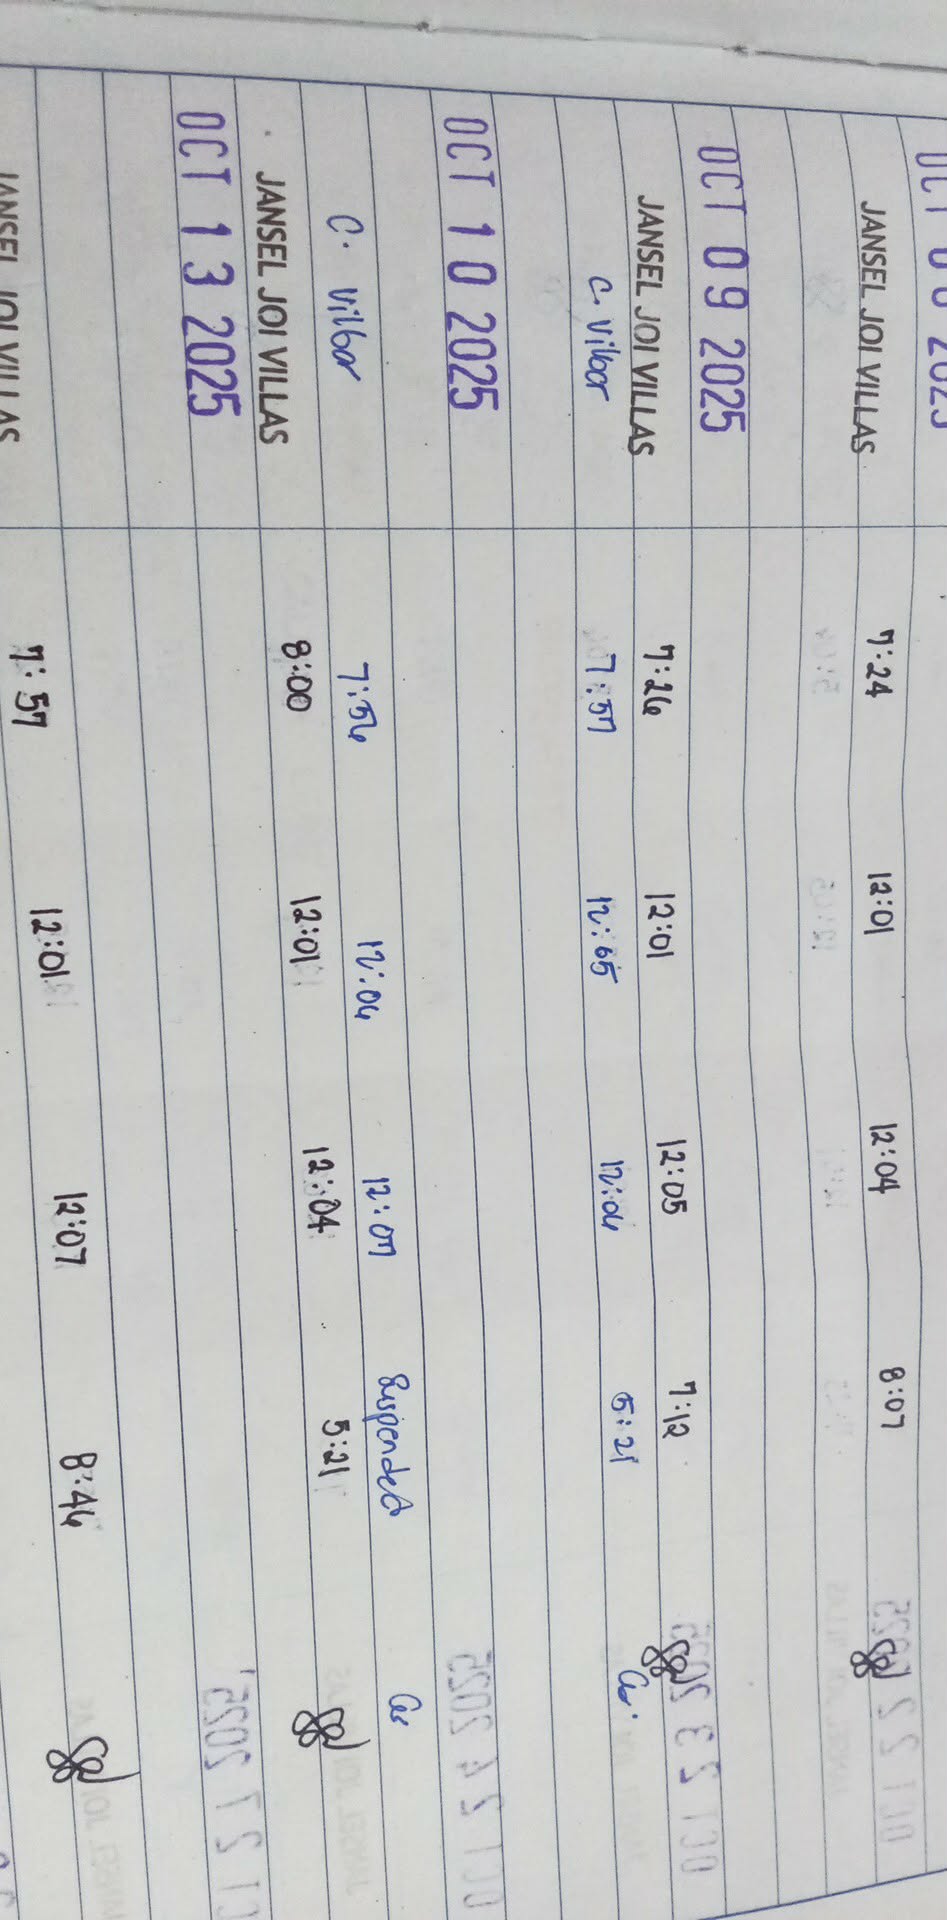 OCT 2025
JANSEL JOI VILLAS 7:24 12:01 12:04 8:07
OCT 09 2025
JANSEL JOI VILLAS 7:26 12:01 12:05 7:12
C. Vilbar 7:57 12:05 12:06 5:21
OCT 10 2025
C. Vilbar 7:56 12:06 12:07 Suspended
JANSEL JOI VILLAS 8:00 12:01 12:04 5:21
OCT 13 2025
JANSEL JOI VILLAS 7:57 12:01 12:07 8:46